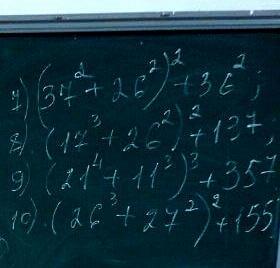 7) (37² + 26²)² + 36²;
8). (17³ + 26²)² + 137;
9) (21⁴ + 11³)³ + 357
10). (26³ + 27²)² + 155